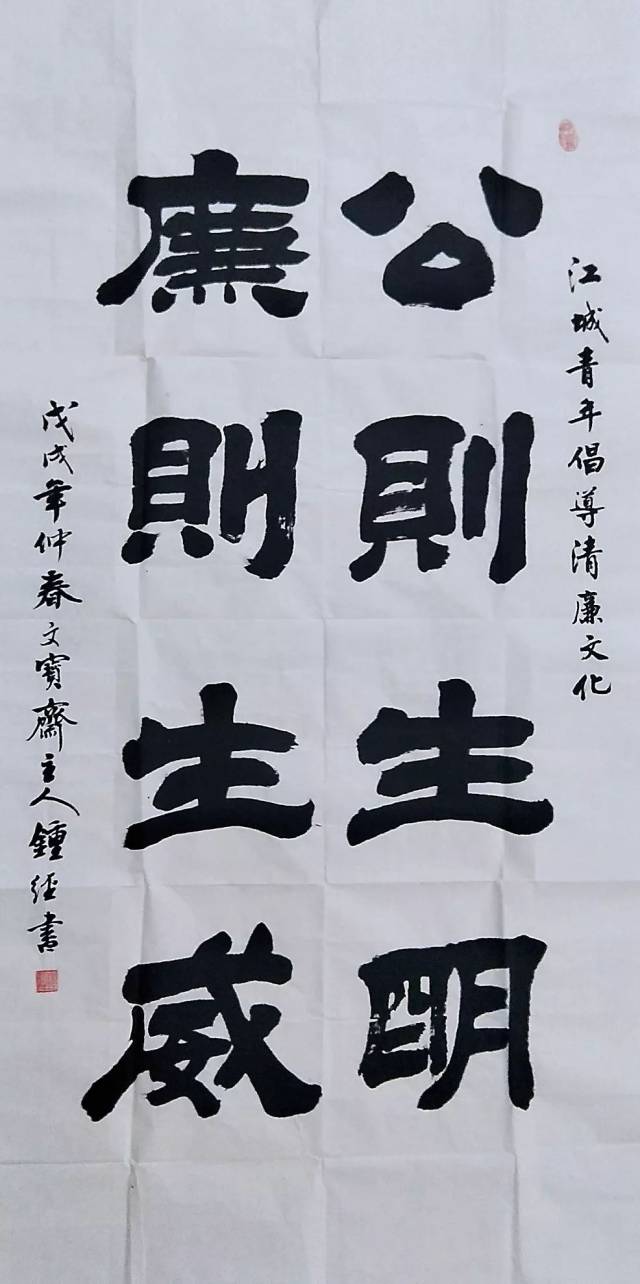 江城青年倡導清廉文化
公則生明
廉則生威
戊戌年仲春文寶齋主人鍾經書